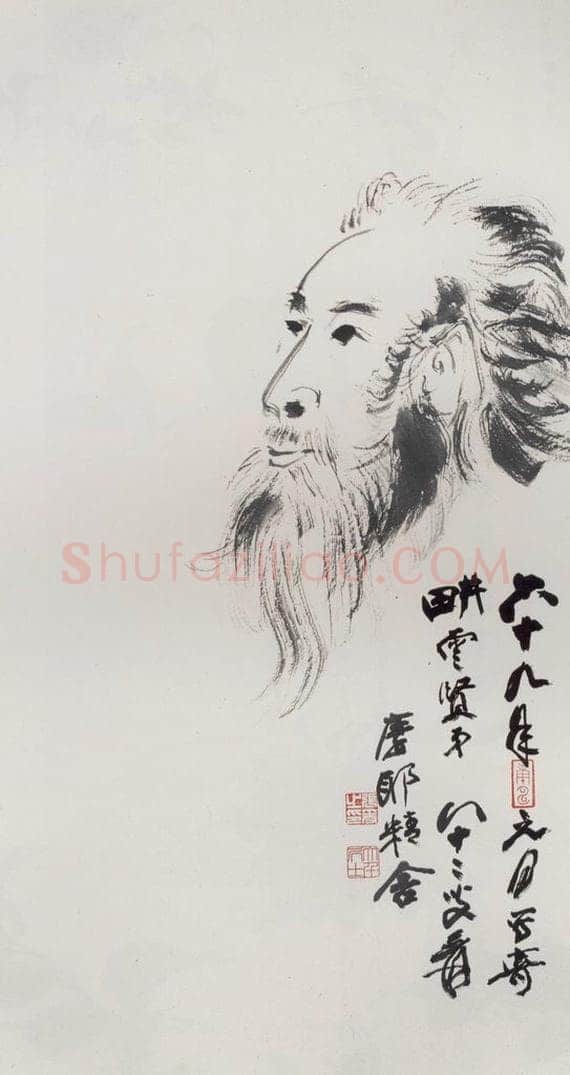 六十九年元月写寄
畊雲賢弟 八十二叟爰
摩耶精舍
Shufaziliao.COM